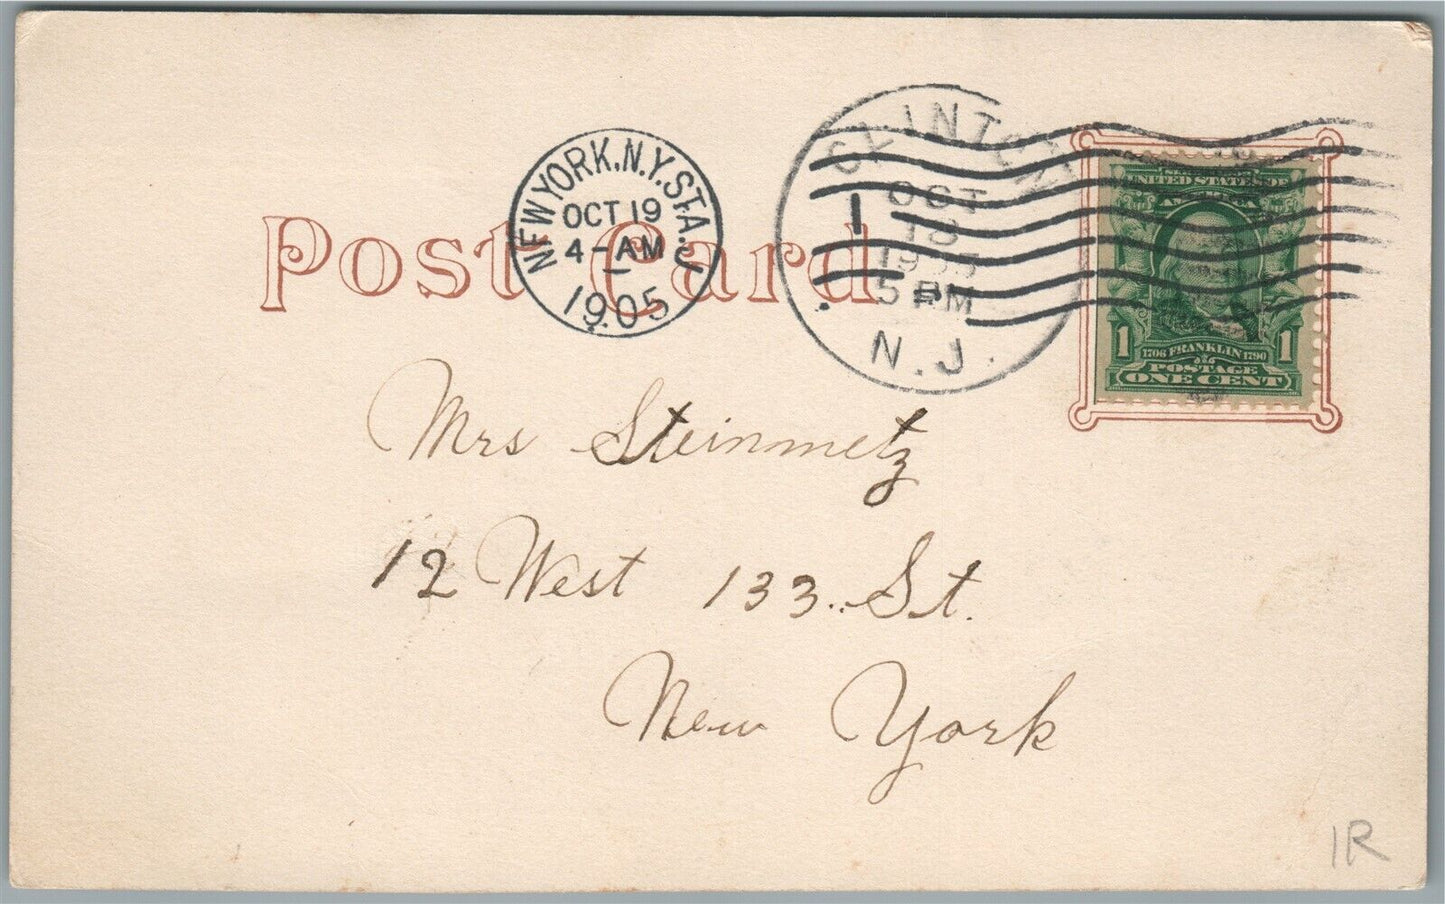 Post Card
NEW YORK, N.Y. STA. J
OCT 19
4-AM
1905
CLINTON
OCT
18
1905
5 PM
N.J.
UNITED STATES OF
AMERICA
1 1
1706 FRANKLIN 1790
POSTAGE
ONE CENT
Mrs Steinmetz
12 West 133. St.
New York
1R